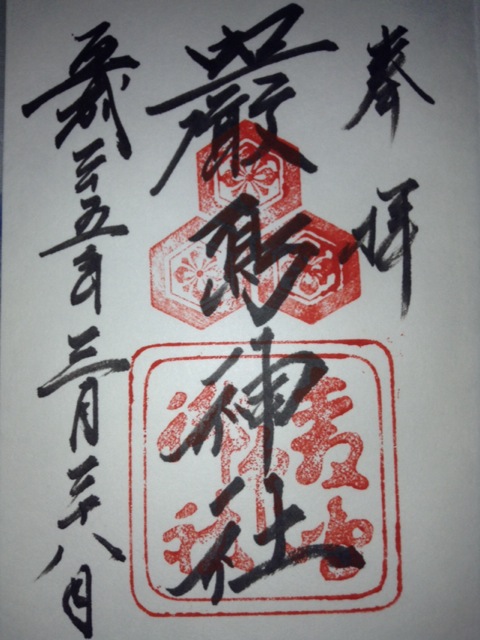 奉拝
嚴島神社
平成二五年三月二十八日